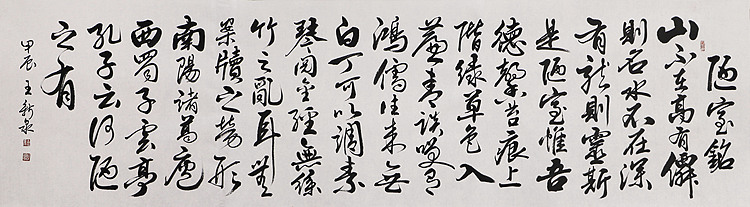 陋室銘
山不在高有僊
則名水不在深
有龍則靈斯
是陋室惟吾
德馨苔痕上
階緑草色入
簾青談笑有
鴻儒往来无
白丁可以調素
琴閲金經無絲
竹之亂耳無
案牘之勞形
南陽諸葛廬
西蜀子雲亭
孔子云何陋
之有
甲辰 王新